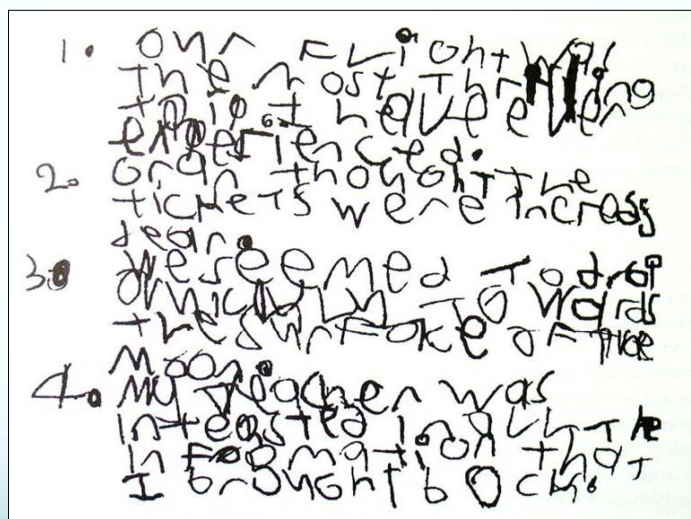 1. Our Flight was
the most thrilling
trip I have ever
experienced.
2. Gran thought the
tickets were increas
dear.
3. We seemed to droi
qnickly towards
the surface of the
moon.
4. My teacher was
inteasted in all the
information that
I brought back.